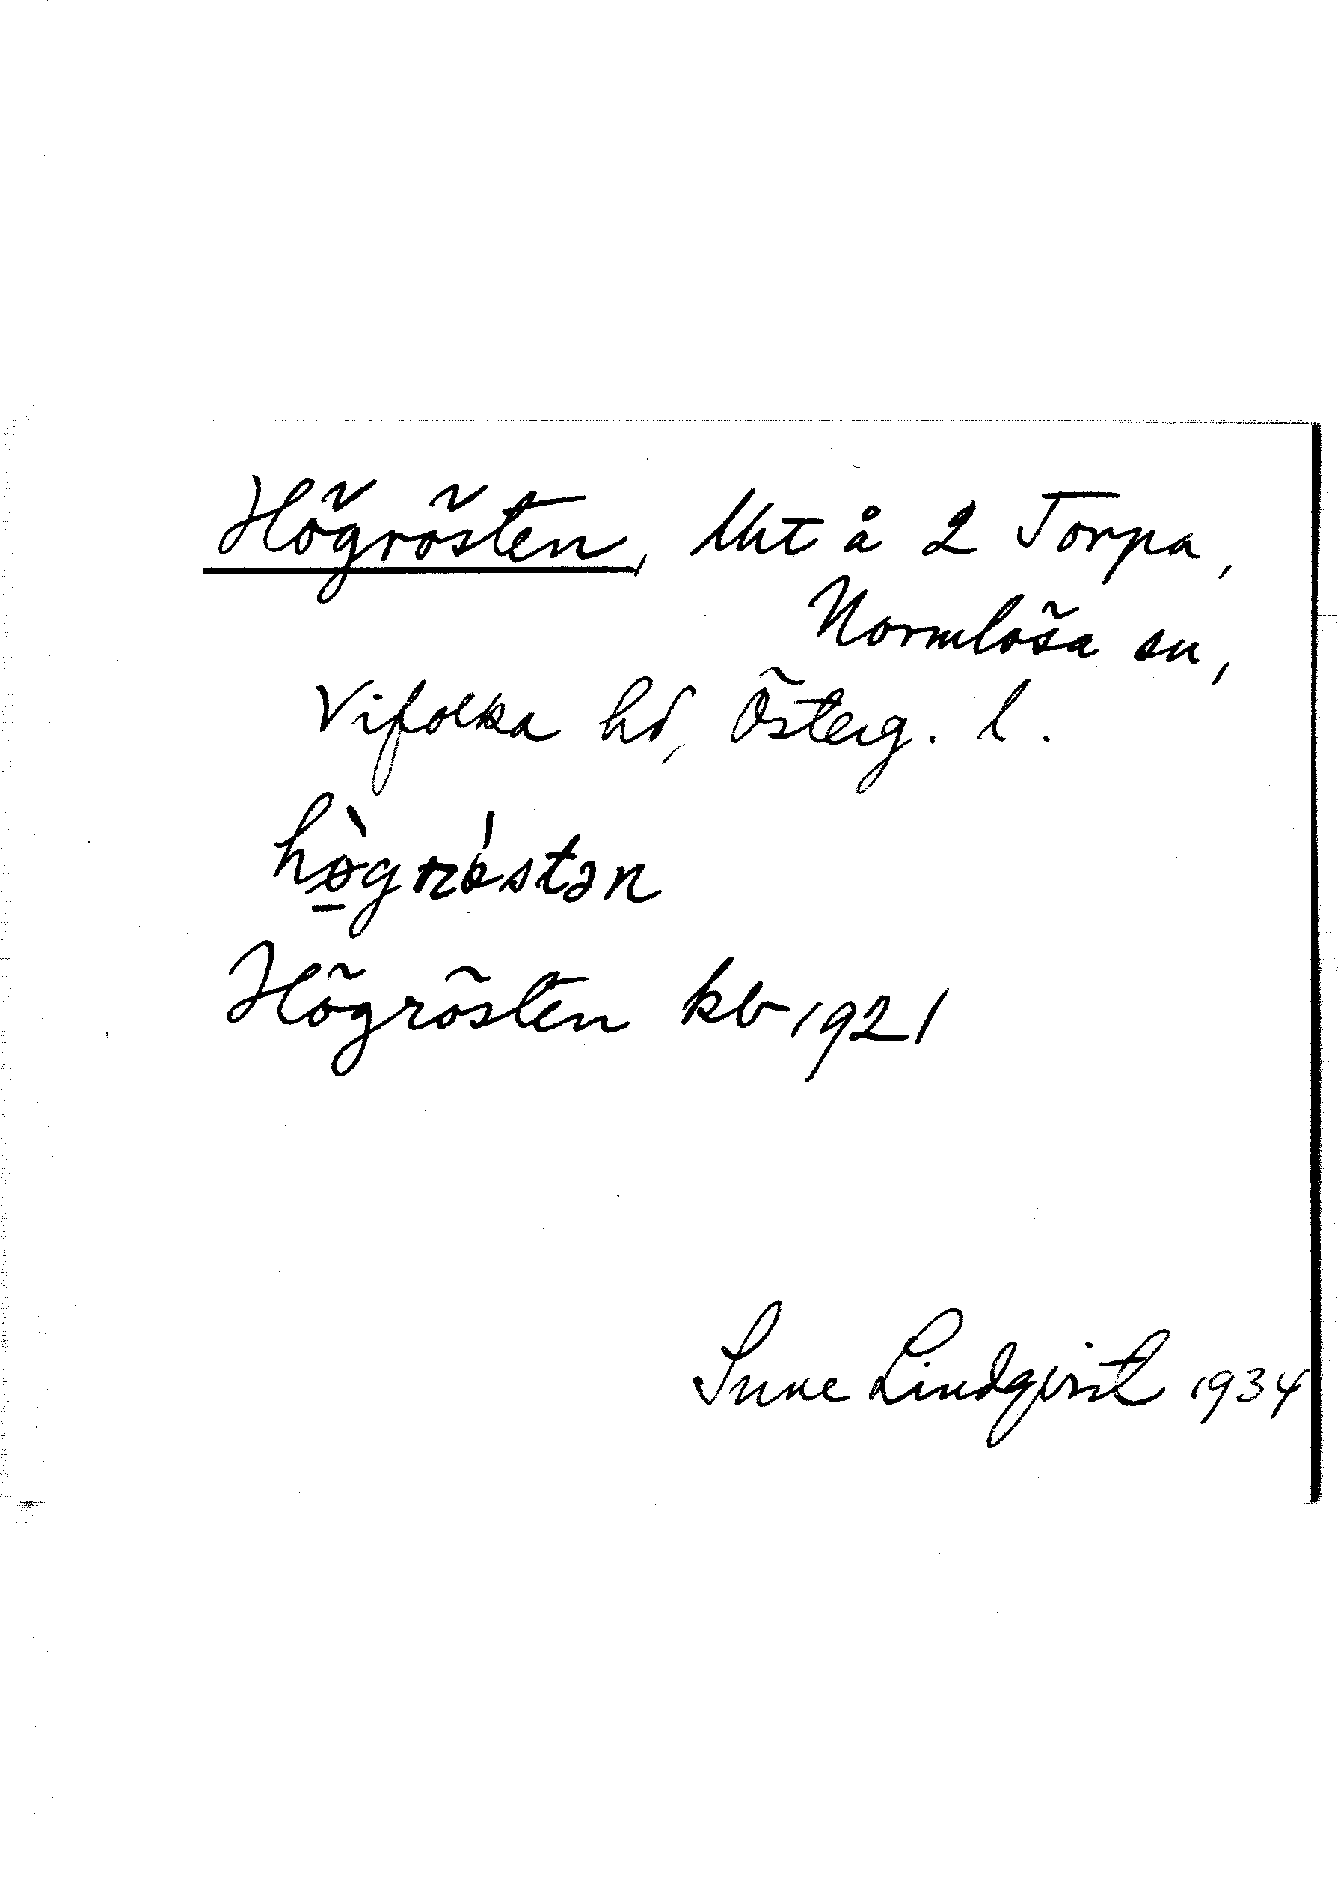 Högrösten, lht å 2 Torpa,
Normlösa sn,
Vifolka hd, Österg. l.
hø̀grǿstən
Högrösten kb 1921
Sune Lindqvist 1934